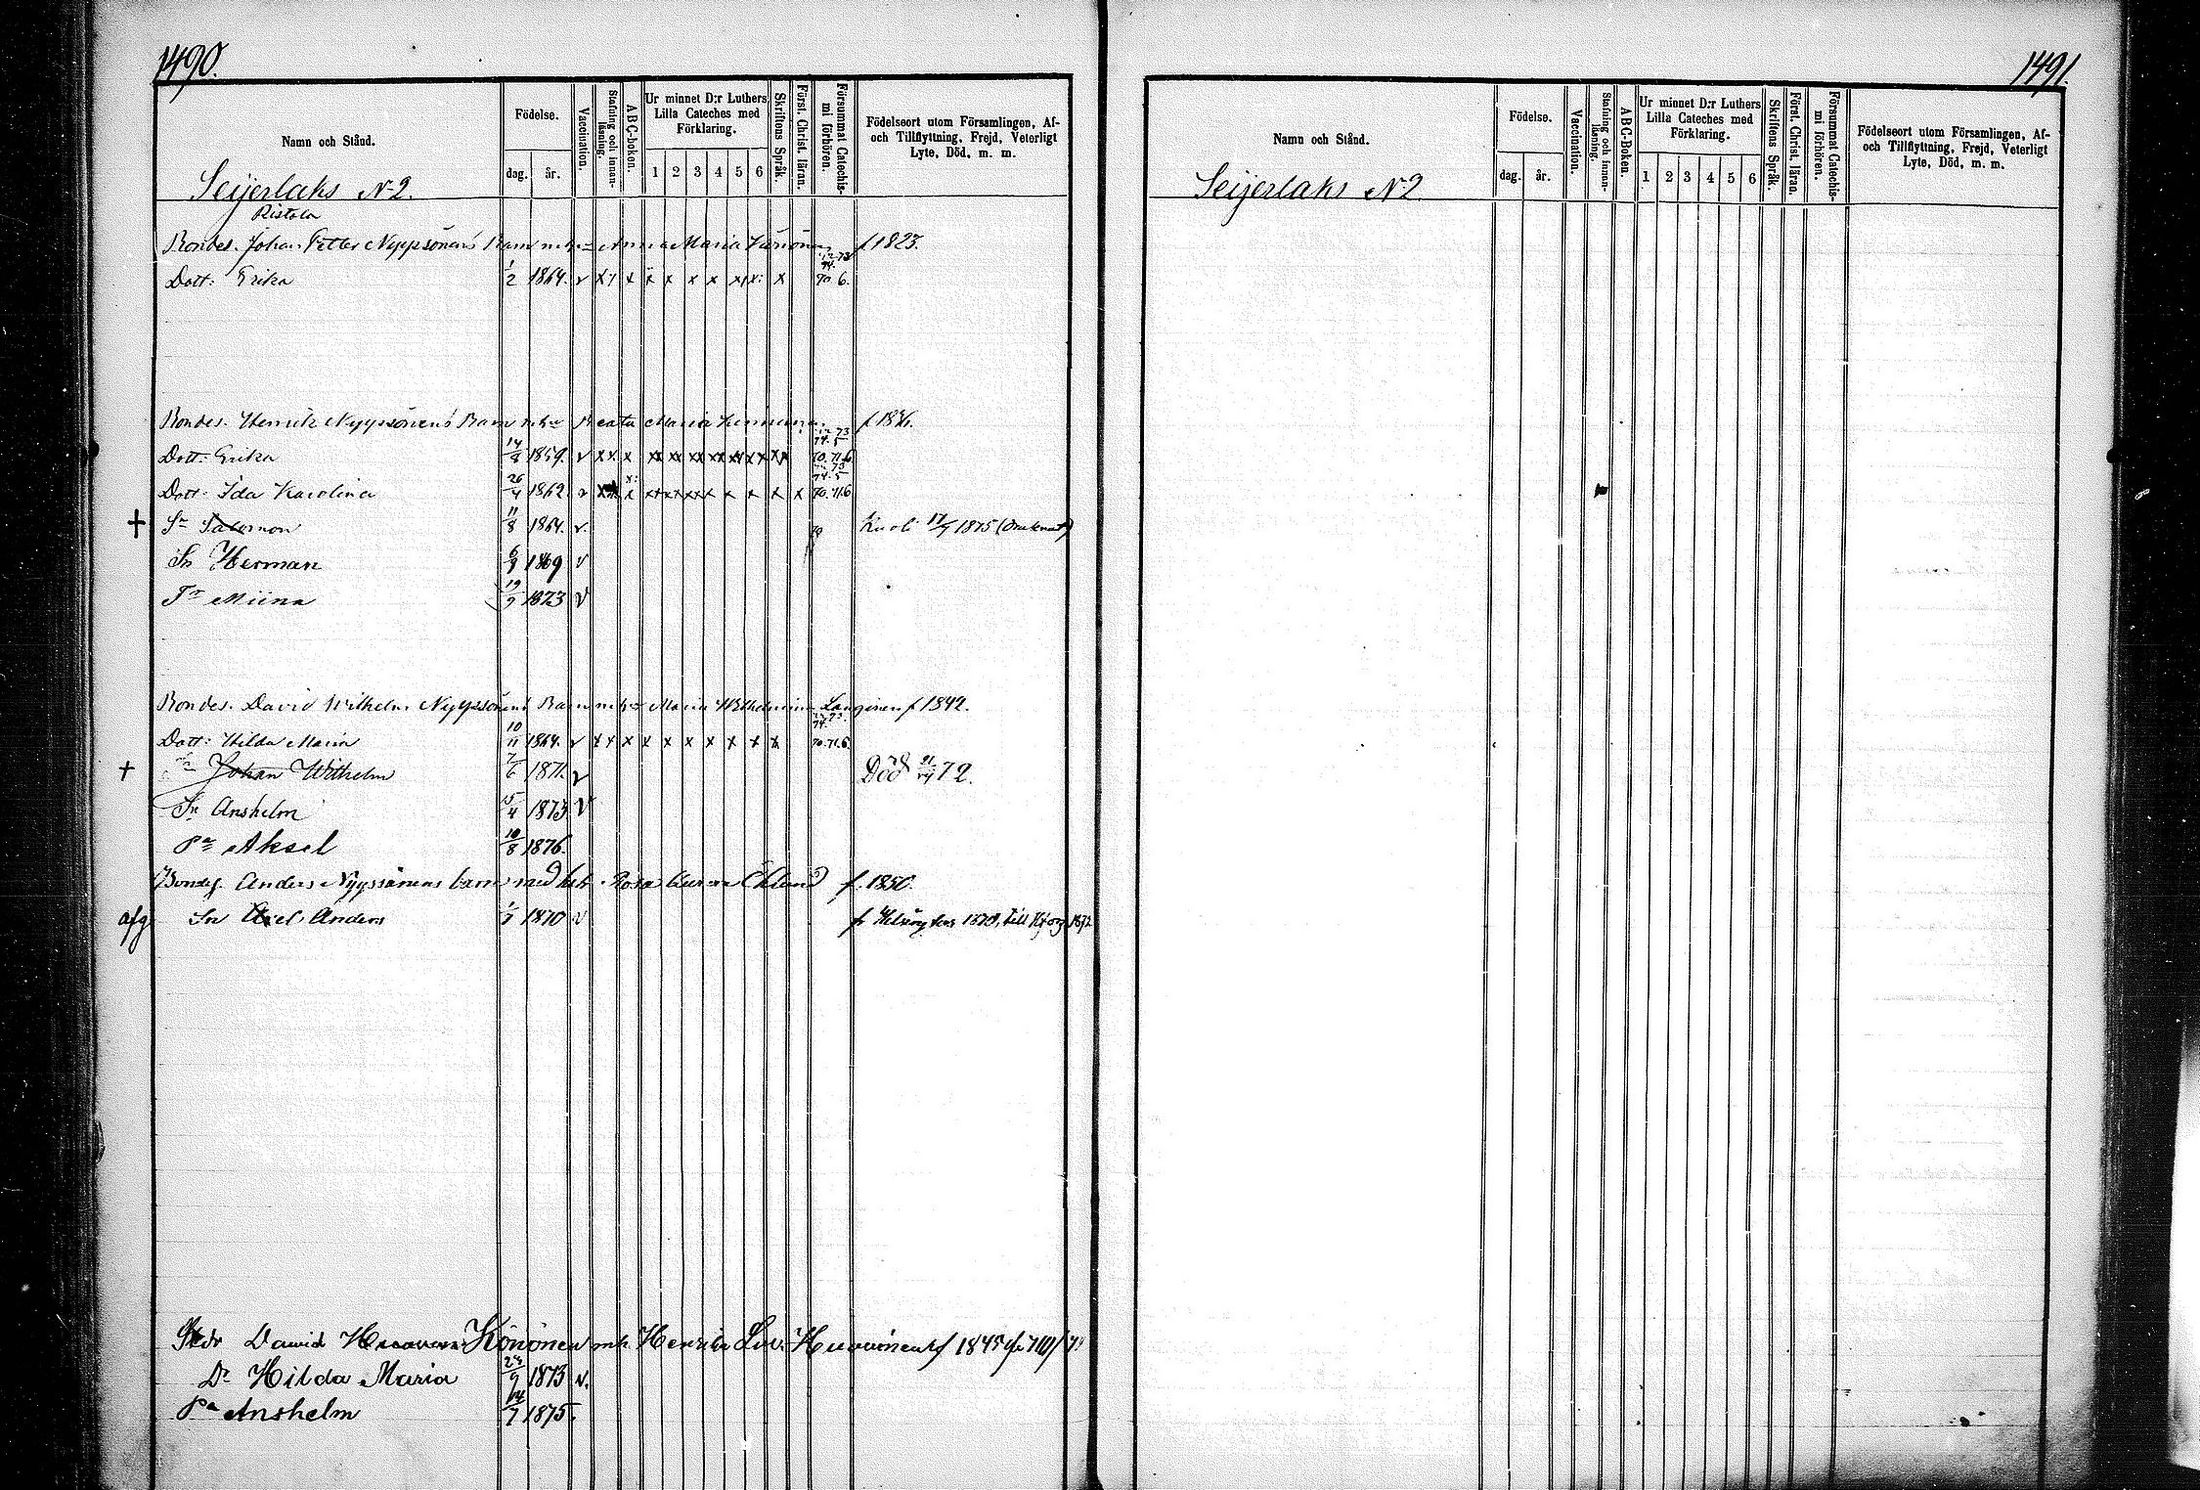 1490.
Namn och Stånd.
Födelse.
dag. år.
Vaccination.
Stafning och innan-läsning.
ABC-boken.
Ur minnet D:r Luthers Lilla Cateches med Förklaring.
1 2 3 4 5 6
Skriftens Språk.
Först. Christ. läran.
Försummat Catechis-mi förhören.
Födelseort utom Församlingen, Af- och Tillflyttning, Frejd, Veterligt Lyte, Död, m. m.
Seijerlaks N 2.
Ristola
Bondes. Johan Petter Nyyssönens Barn m. h. Anna Maria f 1823.
Dott: Erika 1/2 1864. v x x x x x x x x x x 70 6.
Bondes. Henrik Nyyssönens Barn m. h. Beata Maria
Dott: Erika 14/8 1859. v x x x xx xx xx xx xx xx xx 70. 71. 6
Dott: Ida Karolina 26/4 1862 v x x x x x x x 70. 71. 6
+ Sn Salomon 11/8 1864. v 70 17/7 1875 (Drunknat)
Sn Herman 6/9 1869 v
Dr Miina 19/9 1873 v
Bondes. David Wilhelm Nyyssönens Barn m. h. Maria Wilhelmina Langinen f 1842.
Dott: Hilda Maria 10/11 1864. v x x x x x x x x x x 70. 71. 6.
+ Johan Wilhelm 7/6 1871. v Död 72.
Sn Anshelm 15/4 1873 v
Sn Aksel 10/8 1876.
Bondes. Anders Nyyssönens barn med hst. Rosa f. 1850.
afg Sn Axel Anders 1870 v fr Helsingfors 1870, till Hfors 1872
David Könönen mh. Henrika Lov. f 1845
Dr Hilda Maria 23/9 1873 v.
Sn Anshelm 14/7 1875.
1491.
Namn och Stånd.
Födelse.
dag. år.
Vaccination.
Stafning och innan-läsning.
ABC-Boken.
Ur minnet D:r Luthers Lilla Cateches med Förklaring.
1 2 3 4 5 6
Skriftens Språk.
Först. Christ. läran.
Försummat Catechis-mi förhören.
Födelseort utom Församlingen, Af- och Tillflyttning, Frejd, Veterligt Lyte, Död, m. m.
Seijerlaks N 2.